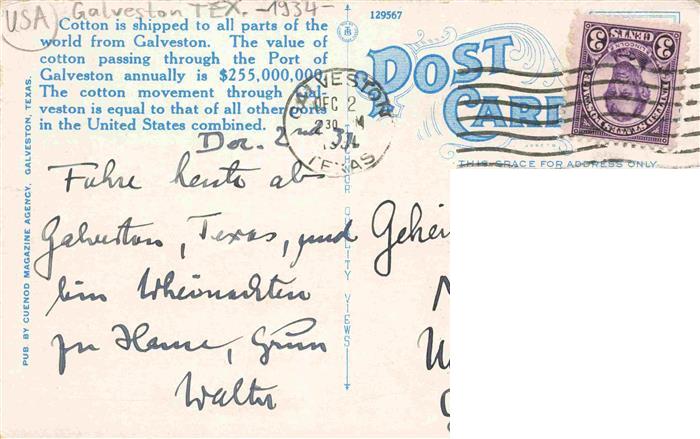 USA Galveston TEX. -1934-
Cotton is shipped to all parts of the
world from Galveston. The value of
cotton passing through the Port of
Galveston annually is $255,000,000
The cotton movement through Gal-
veston is equal to that of all other ports
in the United States combined.
PUB. BY CUENOD MAGAZINE AGENCY, GALVESTON, TEXAS.
Dec. 2nd 34
Fahre heute ab
Galveston, Texas, und
bin Weihnachten
zu Hause, Gruss
Walter
129567
POST
CARD
THIS SPACE FOR ADDRESS ONLY
GALVESTON
DEC 2
2 30 M
TEXAS
3 CENTS 3
LINCOLN
UNITED STATES POSTAGE
QUALITY VIEWS
Gehei